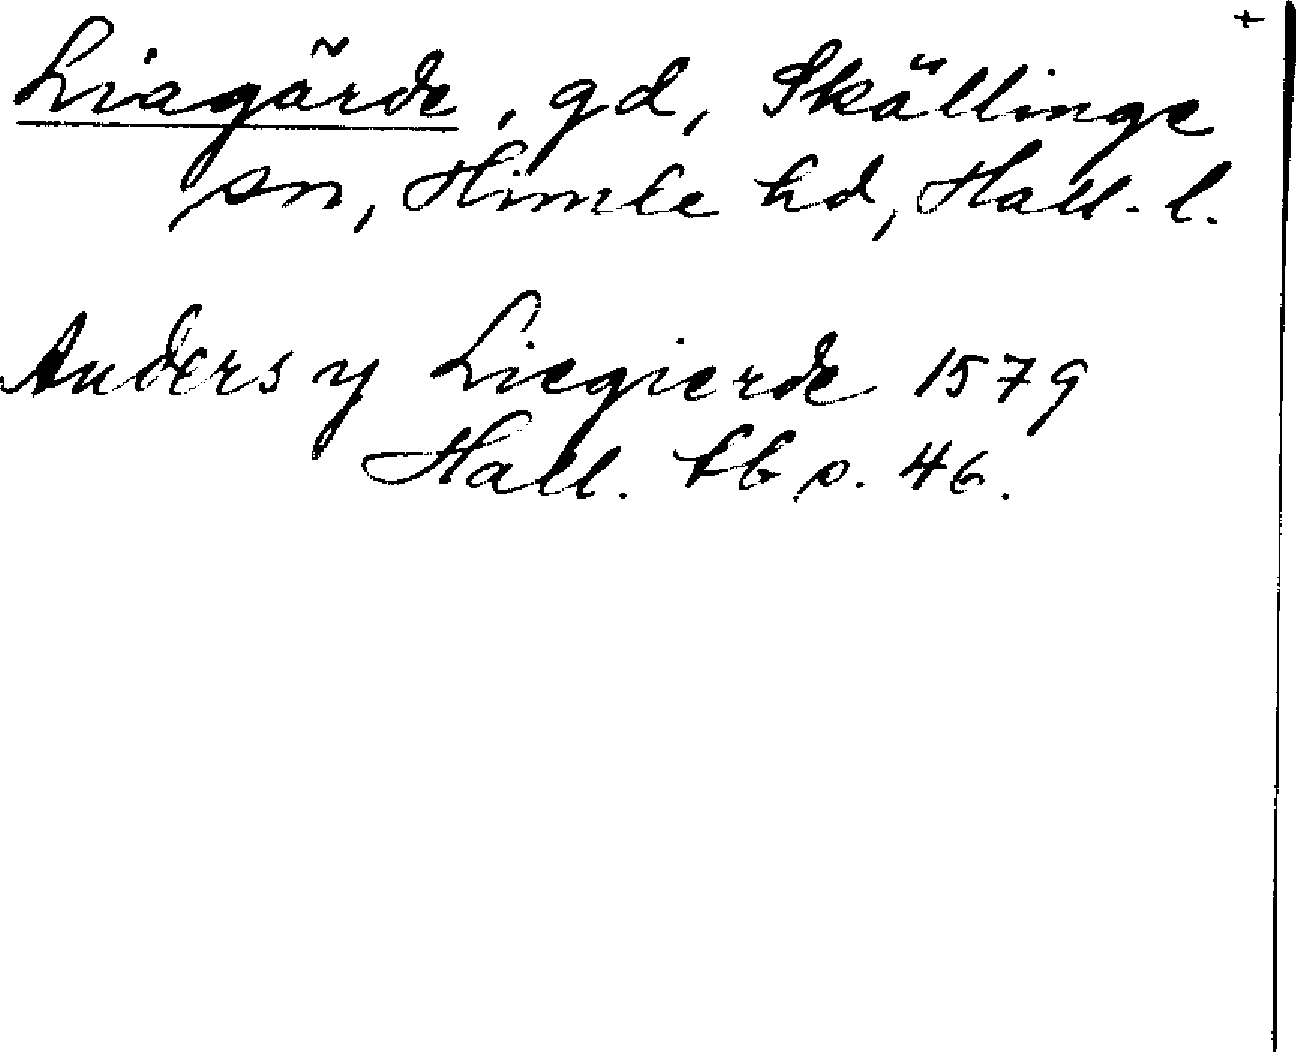 +
Liagärde, gd, Skällinge
sn, Himle hd, Hall. l.
Anders y Liegierde 1579
Hall. tb s. 46.